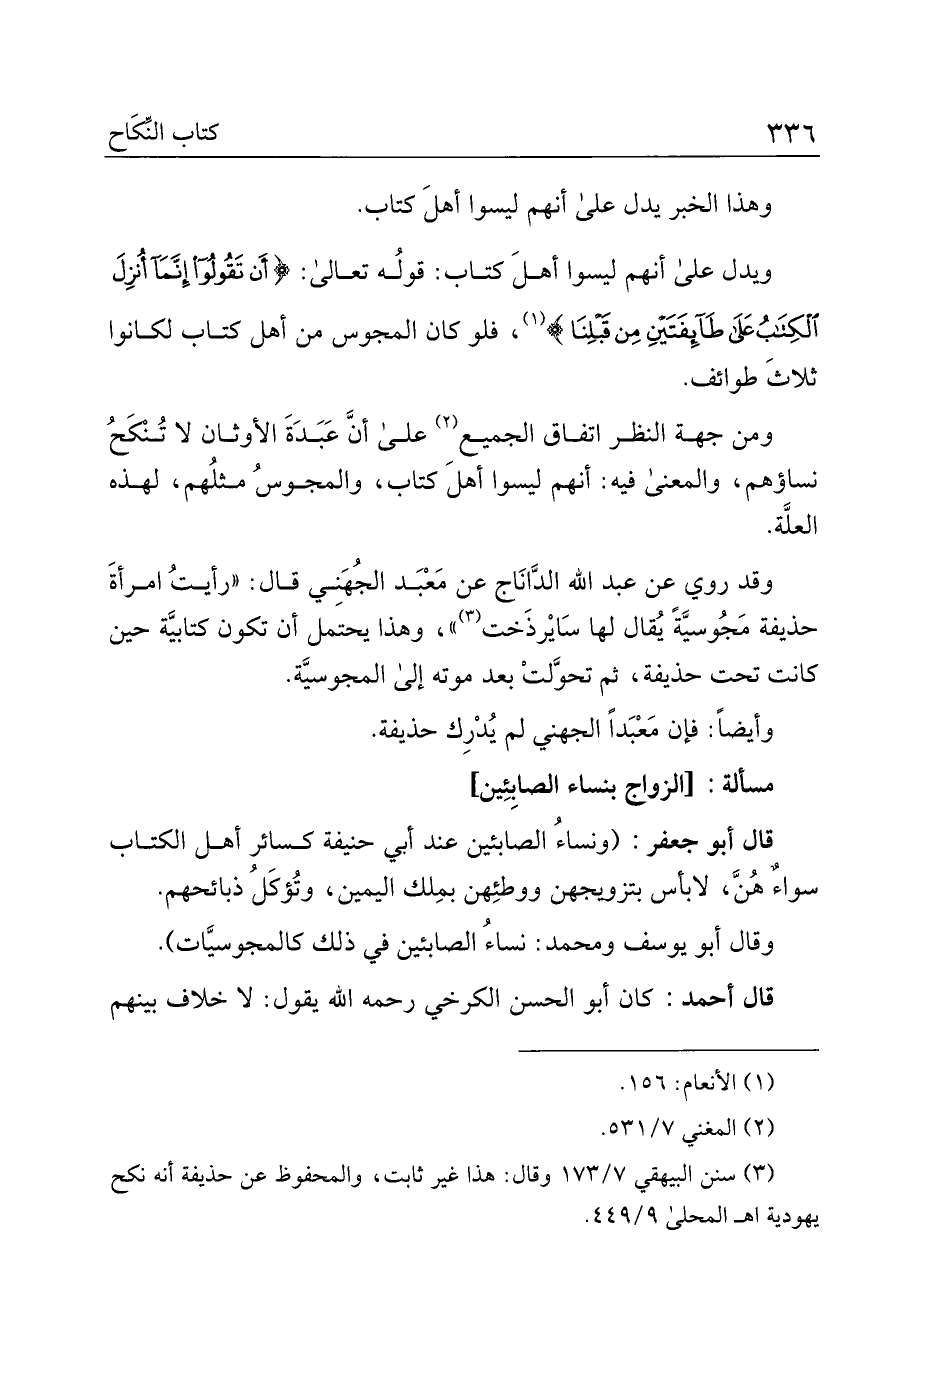 ٣٣٦ كتاب النِّكَاح
وهذا الخبر يدل علىٰ أنهم ليسوا أهلَ كتاب.
ويدل علىٰ أنهم ليسوا أهـلَ كتـاب: قولُـه تعـالىٰ: ﴿أَن تَقُولُوٓاْ إِنَّمَآ أُنزِلَ
ٱلْكِتَٰبُ عَلَىٰ طَآئِفَتَيْنِ مِن قَبْلِنَا﴾(١)، فلو كان المجوس من أهل كتـاب لكـانوا
ثلاثَ طوائف.
ومن جهـة النظـر اتفـاق الجميـع(٢) علـىٰ أنَّ عَبَـدَةَ الأوثـان لا تُـنْكَحُ
نساؤهم، والمعنىٰ فيه: أنهم ليسوا أهلَ كتاب، والمجـوسُ مـثلُهم، لهـذه
العلَّة.
وقد روي عن عبد الله الدَّانَاج عن مَعْبَـد الجُهَنِـي قـال: «رأيـتُ امـرأةَ
حذيفة مَجُوسيَّةً يُقال لها سَايْرذَخت(٣)»، وهذا يحتمل أن تكون كتابيَّة حين
كانت تحت حذيفة، ثم تحوَّلتْ بعد موته إلىٰ المجوسيَّة.
وأيضاً: فإن مَعْبَداً الجهني لم يُدْرِك حذيفة.
مسألة : [الزواج بنساء الصابِئِين]
قال أبو جعفر : (ونساءُ الصابئين عند أبي حنيفة كـسائر أهـل الكتـاب
سواءٌ هُنَّ، لابأس بتزويجهن ووطئِهن بمِلك اليمين، وتُؤكَلُ ذبائحهم.
وقال أبو يوسف ومحمد: نساءُ الصابئين في ذلك كالمجوسيَّات).
قال أحمد : كان أبو الحسن الكرخي رحمه الله يقول: لا خلاف بينهم
(١) الأنعام: ١٥٦.
(٢) المغني ٥٣١/٧.
(٣) سنن البيهقي ١٧٣/٧ وقال: هذا غير ثابت، والمحفوظ عن حذيفة أنه نكح
يهودية اهـ المحلىٰ ٤٤٩/٩.